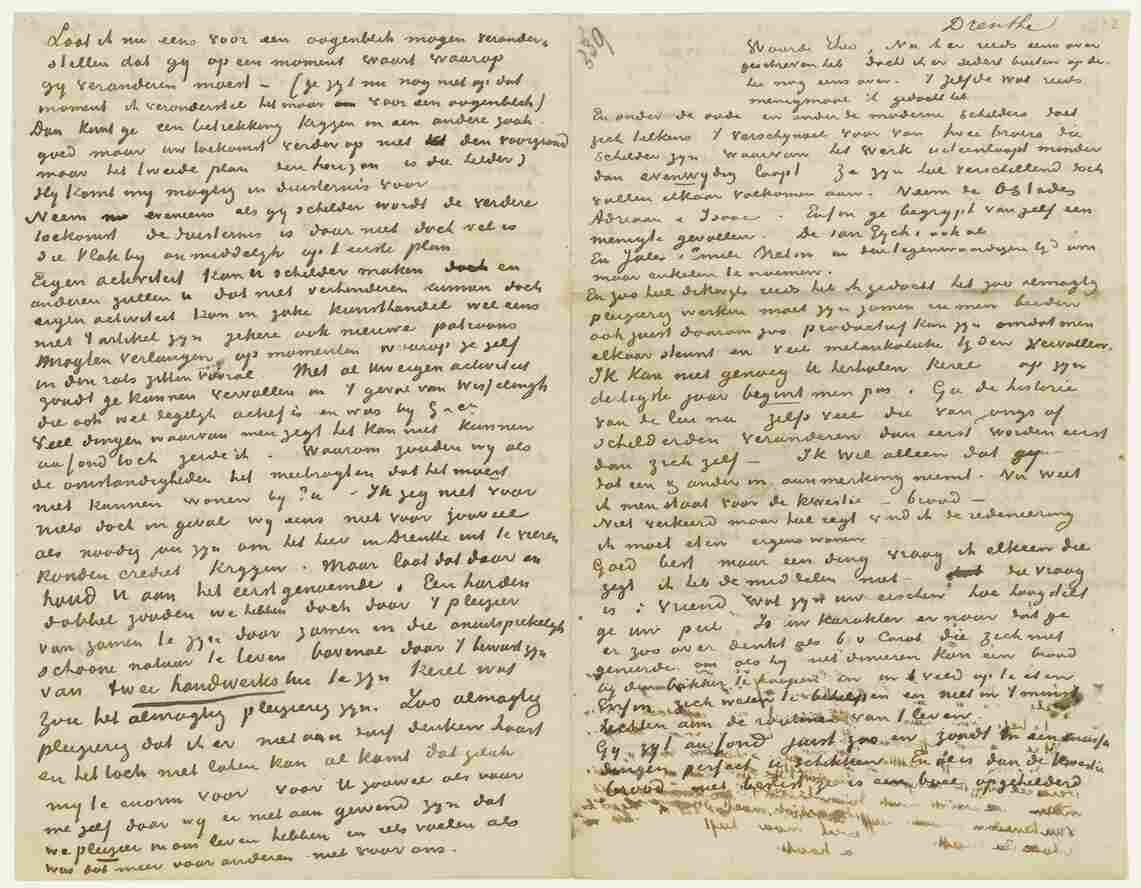 Laat ik nu eens voor een oogenblik mogen veronder-
stellen dat gij op een moment waart waarop
gij veranderen moest – (ge zijt nu nog niet op dat
moment ik veronderstel het maar voor een oogenblik)
Dan kunt ge een betrekking krijgen in een andere zaak
goed maar uw toekomst verder op niet den voorgrond
maar het tweede plan den horizon is die helder?
Hij komt mij magtig in duisternis voor
Neem eveneens als gij schilder wordt de verdere
toekomst de duisternis is daar niet doch wel is
die vlak bij onmiddelijk op 't eerste plan
Eigen activiteit kan U schilder maken en
anderen zullen U dat niet verhinderen kunnen doch
eigen activiteit kon in zake kunsthandel wel eens
niet 't artikel zijn hetwelk ook nieuwe patroons
mogten verlangen op momenten waarop ze zelf
in den rats zitten vooral Met al Uw eigen activiteit
zoudt ge kunnen vervallen in 't geval van Wisselingh
die ook wel degelijk actief is en was bij G. & Cie
Veel dingen waarvan men zegt het kan niet kunnen
au fond toch zeide ik. Waarom zouden wij als
de omstandigheden het meebragten dat het moest
niet kunnen wonen bij ? u – Ik zeg niet voor
niets doch in geval wij eens niet voor zooveel
als noodig zou zijn om het hier in Drenthe uit te vieren
konden crediet krijgen. Maar laat dat daar en
houd U aan het eerstgenoemde. Een harden
dobbel zouden we hebben doch door 't plezier
van zamen te zijn door zamen in die onuitsprekelijk
schoone natuur te leven bovenal door 't bewustzijn
van twee handwerkslui te zijn kerel wat
zou het almagtig pleizierig zijn. Zoo almagtig
pleizierig dat ik er niet aan durf denken haast
en het toch niet laten kan al komt dat geluk
mij te enorm voor voor U zoowel als voor
me zelf daar wij er niet aan gewend zijn dat
we pleizier in ons leven hebben en iets voelen als
was dat meer voor anderen niet voor ons.
Drenthe
339
Waarde Theo, Na ik er reeds eens over
geschreven heb dacht ik er sedert buiten op de
hei nog eens over. 't zelfde wat reeds
menigmaal ik gedacht heb
En onder de oude en onder de moderne schilders doet
zich telkens 't verschijnsel voor van twee broers die
schilder zijn waarvan het werk uiteenloopt minder
dan evenwijdig loopt Ze zijn heel verschillend doch
vullen elkaar volkomen aan. Neem de Ostades
Adriaan & Isaac. Enfin ge begrijpt van zelf een
menigte gevallen. De van Eycks ook al
En Jules & Emile Breton in den tegenwoordigen tijd om
maar enkelen te noemen.
En zoo heel dikwijls reeds heb ik gedacht het zoo almagtig
pleizierig werken moet zijn zamen en men beiden
ook juist daarom zoo productief kan zijn omdat men
elkaar steunt en veel melankolieke tijden vervallen.
Ik kan niet genoeg U herhalen kerel op zijn
dertigste jaar begint men pas. Ga de historie
van de lui na zelfs veel die van jongs af
schilderden veranderen dan eerst worden eerst
dan zich zelf – Ik wil alleen dat gij
dat een & ander in aanmerking neemt. Nu weet
ik men staat voor de kwestie – brood –
Niet verkeerd maar heel regt vind ik de redeneering
ik moet eten ergens wonen
Goed best maar een ding vraag ik elkeen die
zegt ik heb de middelen niet – die vraag
is: Vriend, wat zijn uw eischen hoe hoog stelt
ge uw peil. Is uw karakter er naar dat ge
er zoo over denkt als b v Corot die zich niet
geneerde om als hij niet dineeren kan een brood
bij den bakker te koopen en in 't veld op te eten
Enfin zich weten te behelpen en niet in 't minst
hechten aan de routine van 't leven
Gij zijt au fond juist zoo en zoudt in een
dingen perfect U schikken En is dan de kwestie
brood niet beslist ze is een boel opgehelderd